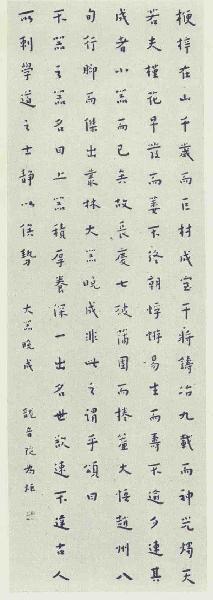 梗梓在山千歲而巨材成宝干將鑄冶九載而神光燭天
若夫槿花早發而萎不終朝蜉蝣易生而壽不逾夕速其
成者小器而已矣故長慶七破蒲團而捲簾大悟趙州八
旬行脚而傑出叢林大器晚成非此之謂乎頌曰
不器之器名曰上器積厚養深一出名世欲速不達古人
所刺學道之士靜以俟勢　大器晚成